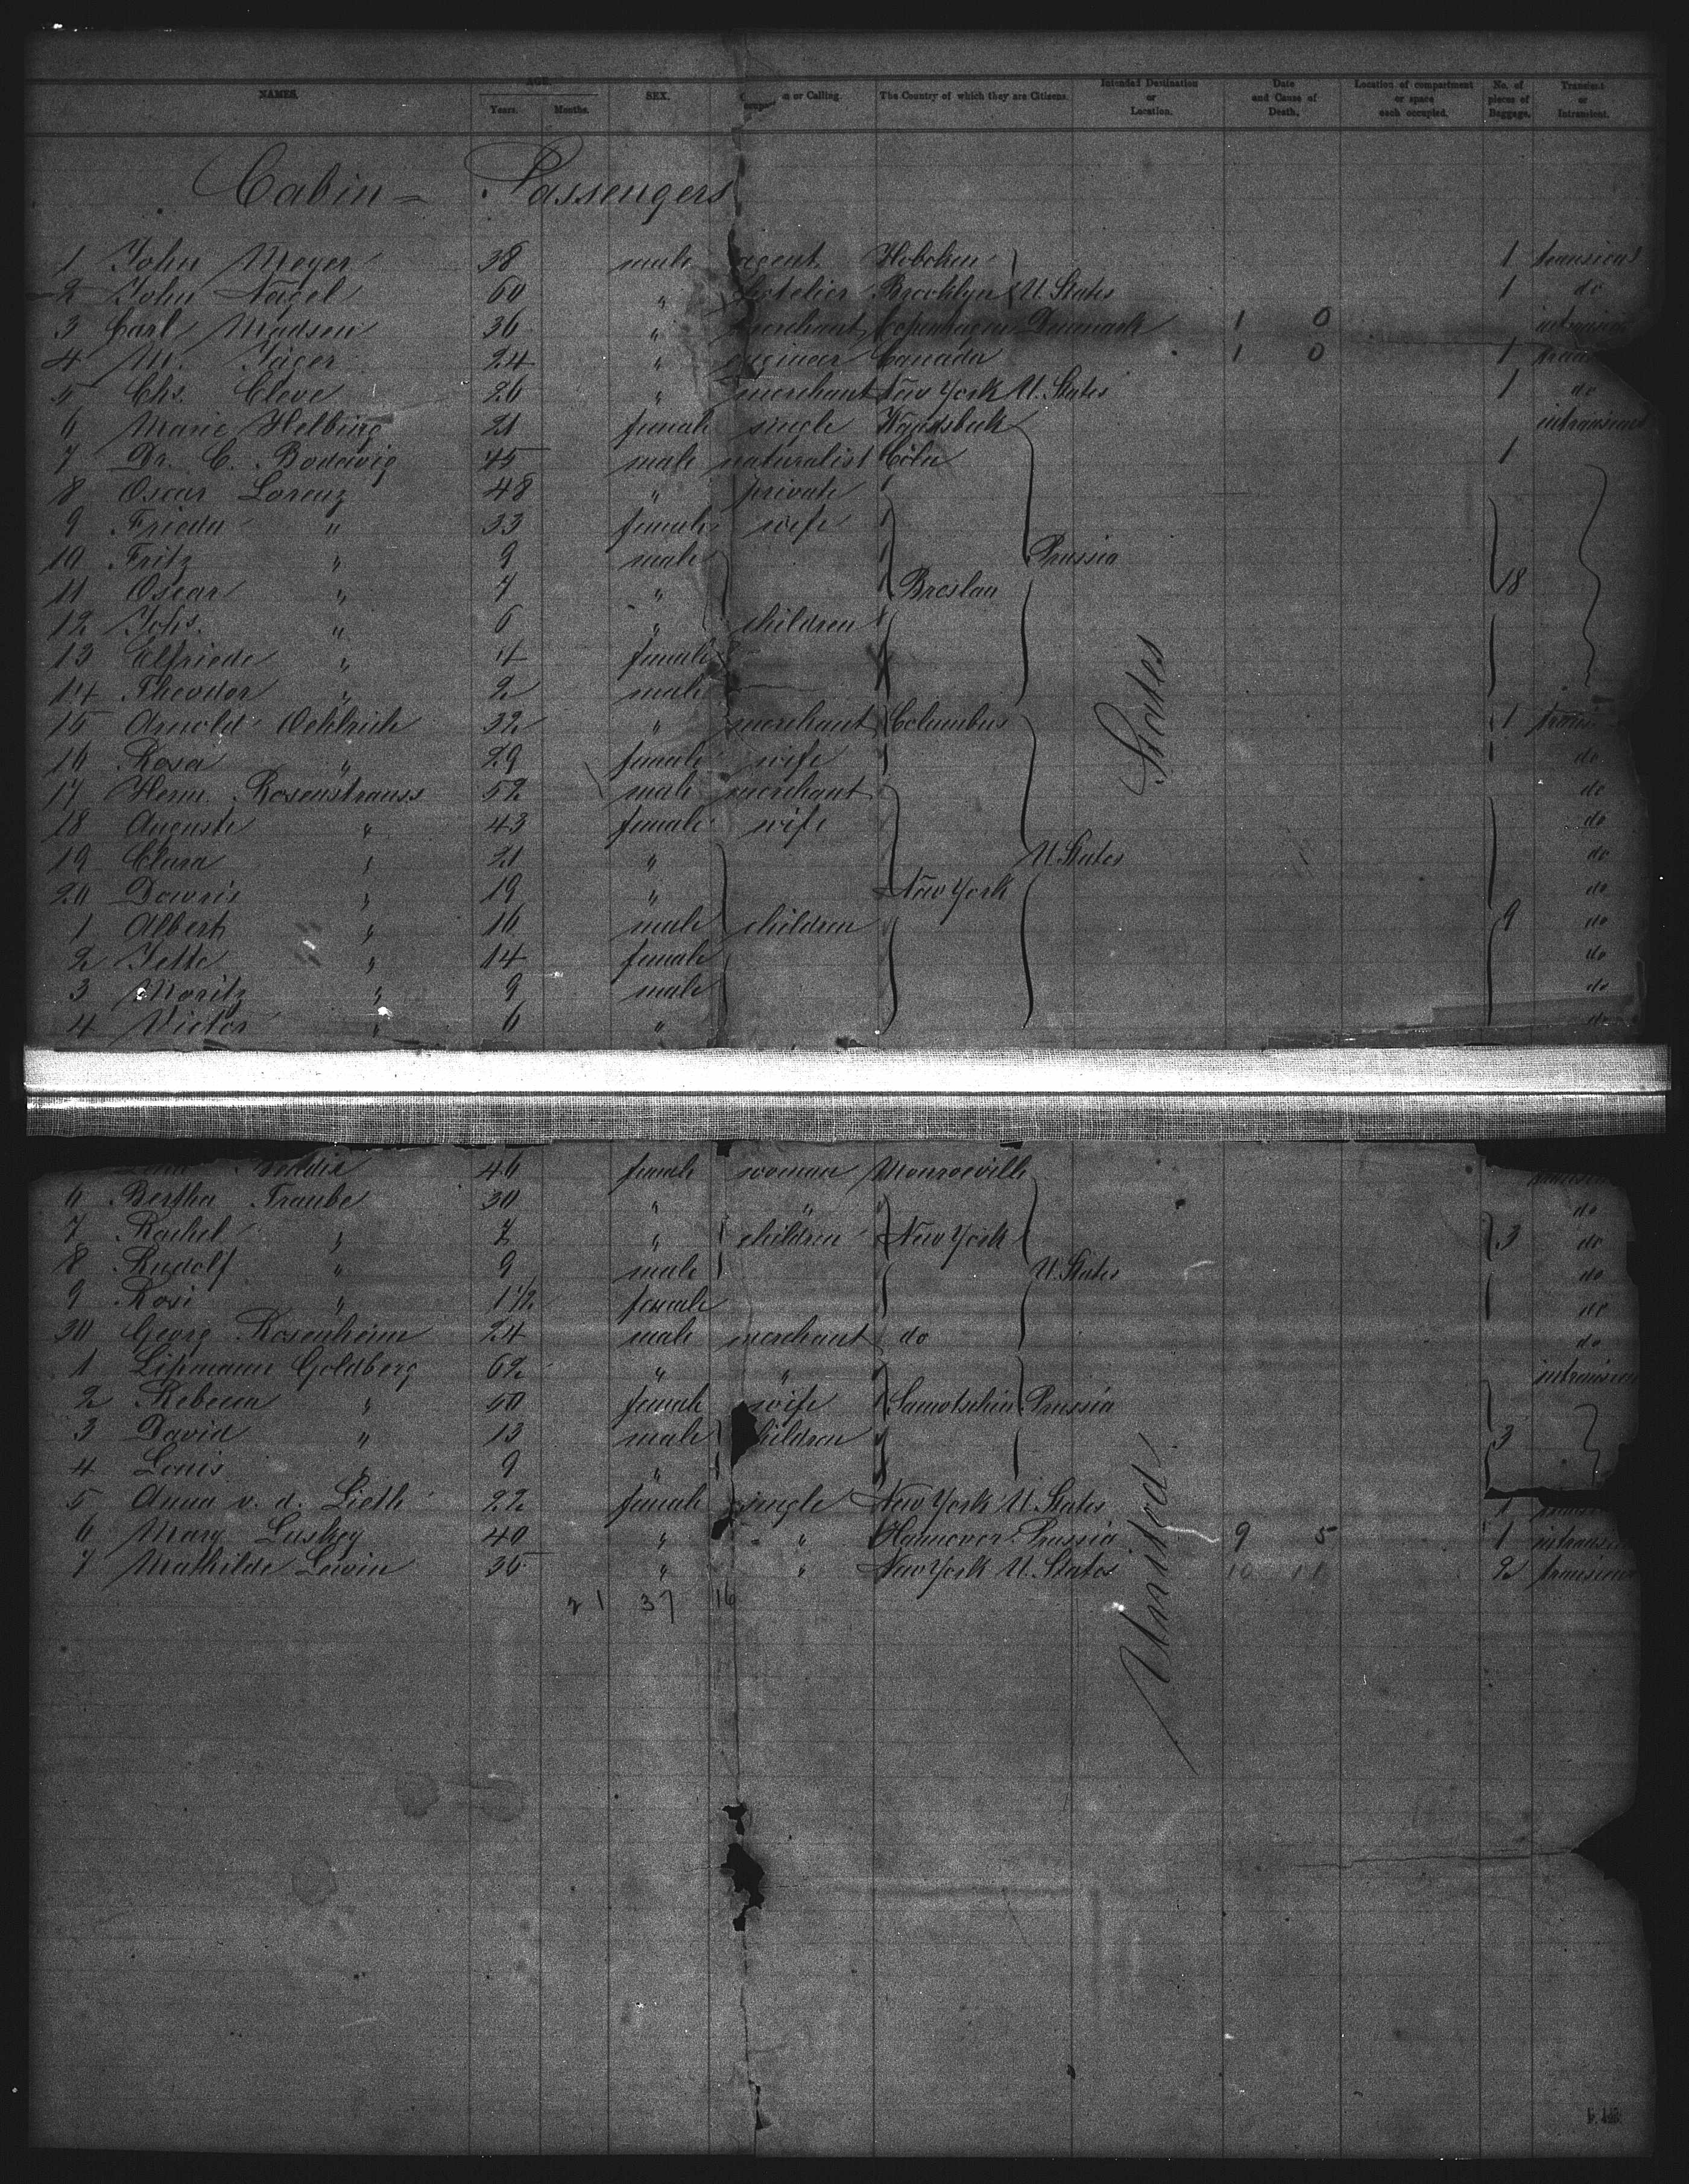 NAMES. AGE. SEX. or Calling. The Country of which they are Citizens. Intended Destination or Location. Date and Cause of Death. Location of compartment or space each occupied. No. of pieces of Baggage. Transient or Intransient.
Years. Months.
Cabin = Passengers
1 John Meyer 38 male agent Hoboken 1 transient
2 John Nagel 60 " Hotelier Brooklyn U. States 1 do
3 Carl Madsen 36 " merchant Copenhagen Denmark 1 0
4 M. Jäger 24 " engineer Canada 1 0 1
5 Chs. Cleve 26 " merchant New York U. States 1 do
6 Marie Helbing 21 female single Wandsbeck intransient
7 Dr. C. Bodewig 45 male naturalist Cöln 1
8 Oscar Lorenz 48 " private
9 Frieda " 33 female wife
10 Fritz " 9 male Prussia
11 Oscar " 7 " Breslau 18
12 Johs. " 6 " children
13 Elfriede " 4 female
14 Theodor " 2 male
15 Arnold Oehlrich 32 " merchant Columbus 1
16 Rosa " 29 female wife do
17 Herm. Rosenstrauss 52 male merchant do
18 Auguste " 43 female wife do
19 Clara " 21 " U. States do
20 Dowris " 19 " New York do
1 Albert " 16 male children 9 do
2 Jette " 14 female do
3 Moritz " 9 male do
4 Victor " 6 " do
States
46 female woman Monroeville
6 Bertha Traube 30 " " do
7 Rachel " 7 " children New York 3 do
8 Rudolf " 9 male U. States do
9 Rosi " 1 1/2 female do
30 Georg Rosenheim 24 male merchant do do
1 Lipmann Goldberg 62 " " intransient
2 Rebecca " 50 female wife Samotschin Prussia
3 David " 13 male children 3
4 Louis " 9 "
5 Anna v. d. Lieth 22 female single New York U. States 1
6 Mary Luskey 40 " " Hannover Prussia 9 5 1 intransient
7 Mathilde Lewin 36 " " New York U. States 10 11 2 transient
21 37 16
United